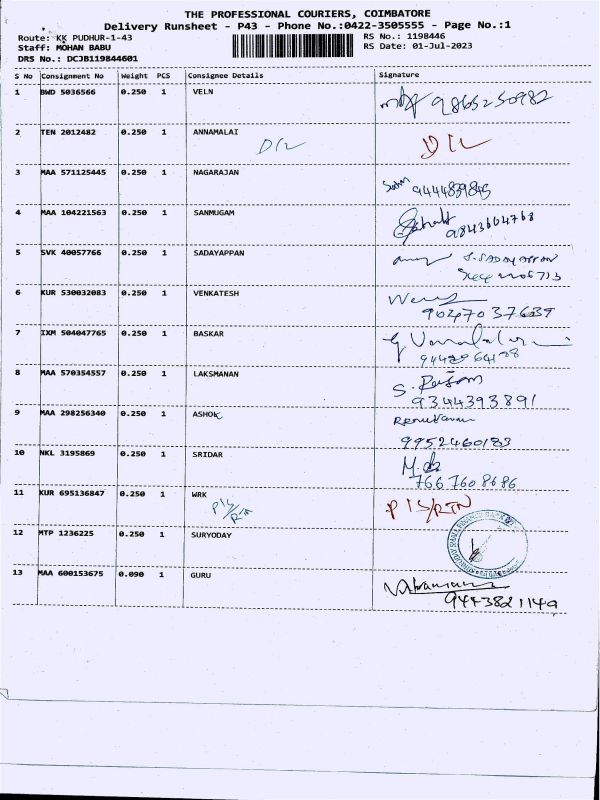 THE PROFESSIONAL COURIERS, COIMBATORE
Delivery Runsheet - P43 - Phone No.:0422-3505555 - Page No.:1
Route: KK PUDHUR-1-43 RS No.: 1198446
Staff: MOHAN BABU RS Date: 01-Jul-2023
DRS No.: DCJB119844601
S No Consignment No Weight PCS Consignee Details Signature
1 BWD 5036566 0.250 1 VELN 9865250982
2 TEN 2012482 0.250 1 ANNAMALAI D/L D/L
3 MAA 571125445 0.250 1 NAGARAJAN
9444839845
4 MAA 104221563 0.250 1 SANMUGAM
9843664768
5 SVK 40057766 0.250 1 SADAYAPPAN S.SADAYAPPAN
6 KUR 530032083 0.250 1 VENKATESH
9047037639
7 IXM 504047765 0.250 1 BASKAR
8 MAA 570354557 0.250 1 LAKSMANAN
9344393891
9 MAA 298256340 0.250 1 ASHOK
9952460183
10 NKL 3195869 0.250 1 SRIDAR
7667608686
11 KUR 695136847 0.250 1 WRK P/S/RTN
P/S/RTN
12 MTP 1236225 0.250 1 SURYODAY
13 MAA 600153675 0.090 1 GURU
9443821149